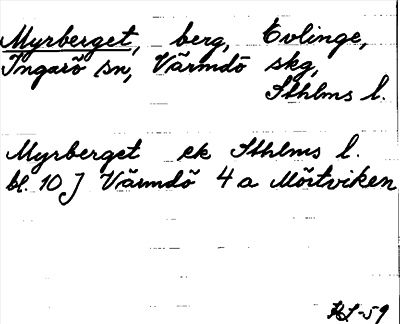 Myrberget, berg, Evlinge,
Ingarö sn, Värmdö skg,
Sthlms l.
Myrberget ek Sthlms l.
bl. 10 J Värmdö 4 a Mörtviken
-59